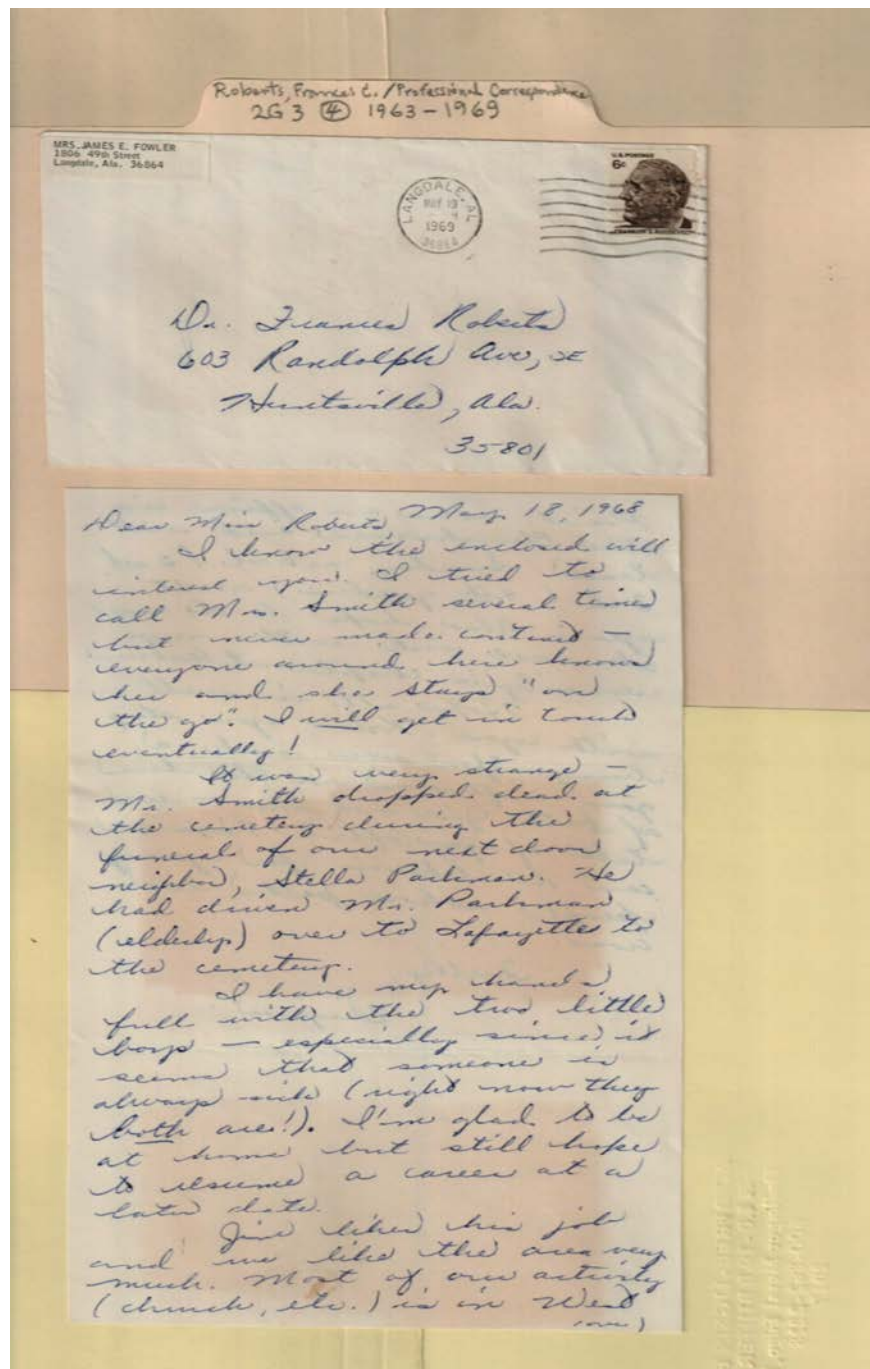 Roberts, Frances C. / Professional Correspondence
2G3 ④ 1963-1969
MRS. JAMES E. FOWLER
1806 49th Street
Langdale, Ala. 36864
LANGDALE, AL
MAY 19
1969
36864
U.S. POSTAGE
6c
FRANKLIN D. ROOSEVELT
Dr. Frances Roberts
603 Randolph Ave, SE
Huntsville, Ala.
35801
Dear Miss Roberts, May 18, 1968
I know the enclosed will
interest you. I tried to
call Mrs. Smith several times
but never made contact —
everyone around here knows
her and she stays "on
the go". I will get in touch
eventually!
It was very strange —
Mr. Smith dropped dead at
the cemetery during the
funeral of our next door
neighbor, Stella Parkman. He
had driven Mr. Parkman
(elderly) over to Lafayette to
the cemetery.
I have my hands
full with the two little
boys — especially since it
seems that someone is
always sick (right now they
both are!). I'm glad to be
at home but still hope
to resume a career at a
later date.
Jim likes his job
and we like the area very
much. Most of our activity
(church, etc.) is in West
(over)